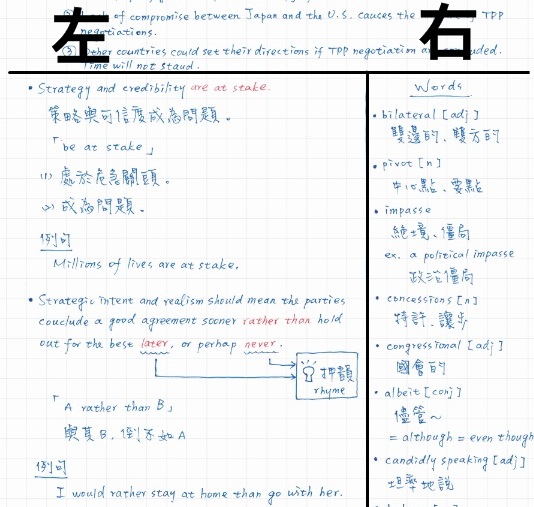 左
右
② Lack of compromise between Japan and the U.S. cauces the TPP
negotiations.
③ Other countries could set their directions if TPP negotiation are concluded.
Time will not staud.
• Strategy and credibility are at stake.
策略與可信度成為問題。
「be at stake」
(1) 處於危急關頭。
(2) 成為問題。
例句
Millions of lives are at stake.
• Strategic intent and realism should mean the parties
couclude a good agreement sooner rather than hold
out for the best later, or perhap never.
押韻
rhyme
「A rather than B」
與其B, 倒不如A
例句
I would rather stay at home than go with her.
Words
• bilateral [adj]
雙邊的、雙方的
• pivot [n]
中心點、要點
• impasse
絕境、僵局
ex. a political impasse
政治僵局
• concessions [n]
特許、讓步
• congressional [adj]
國會的
• albeit [conj]
儘管~
= although = even though
• candidly speaking [adj]
坦率地說